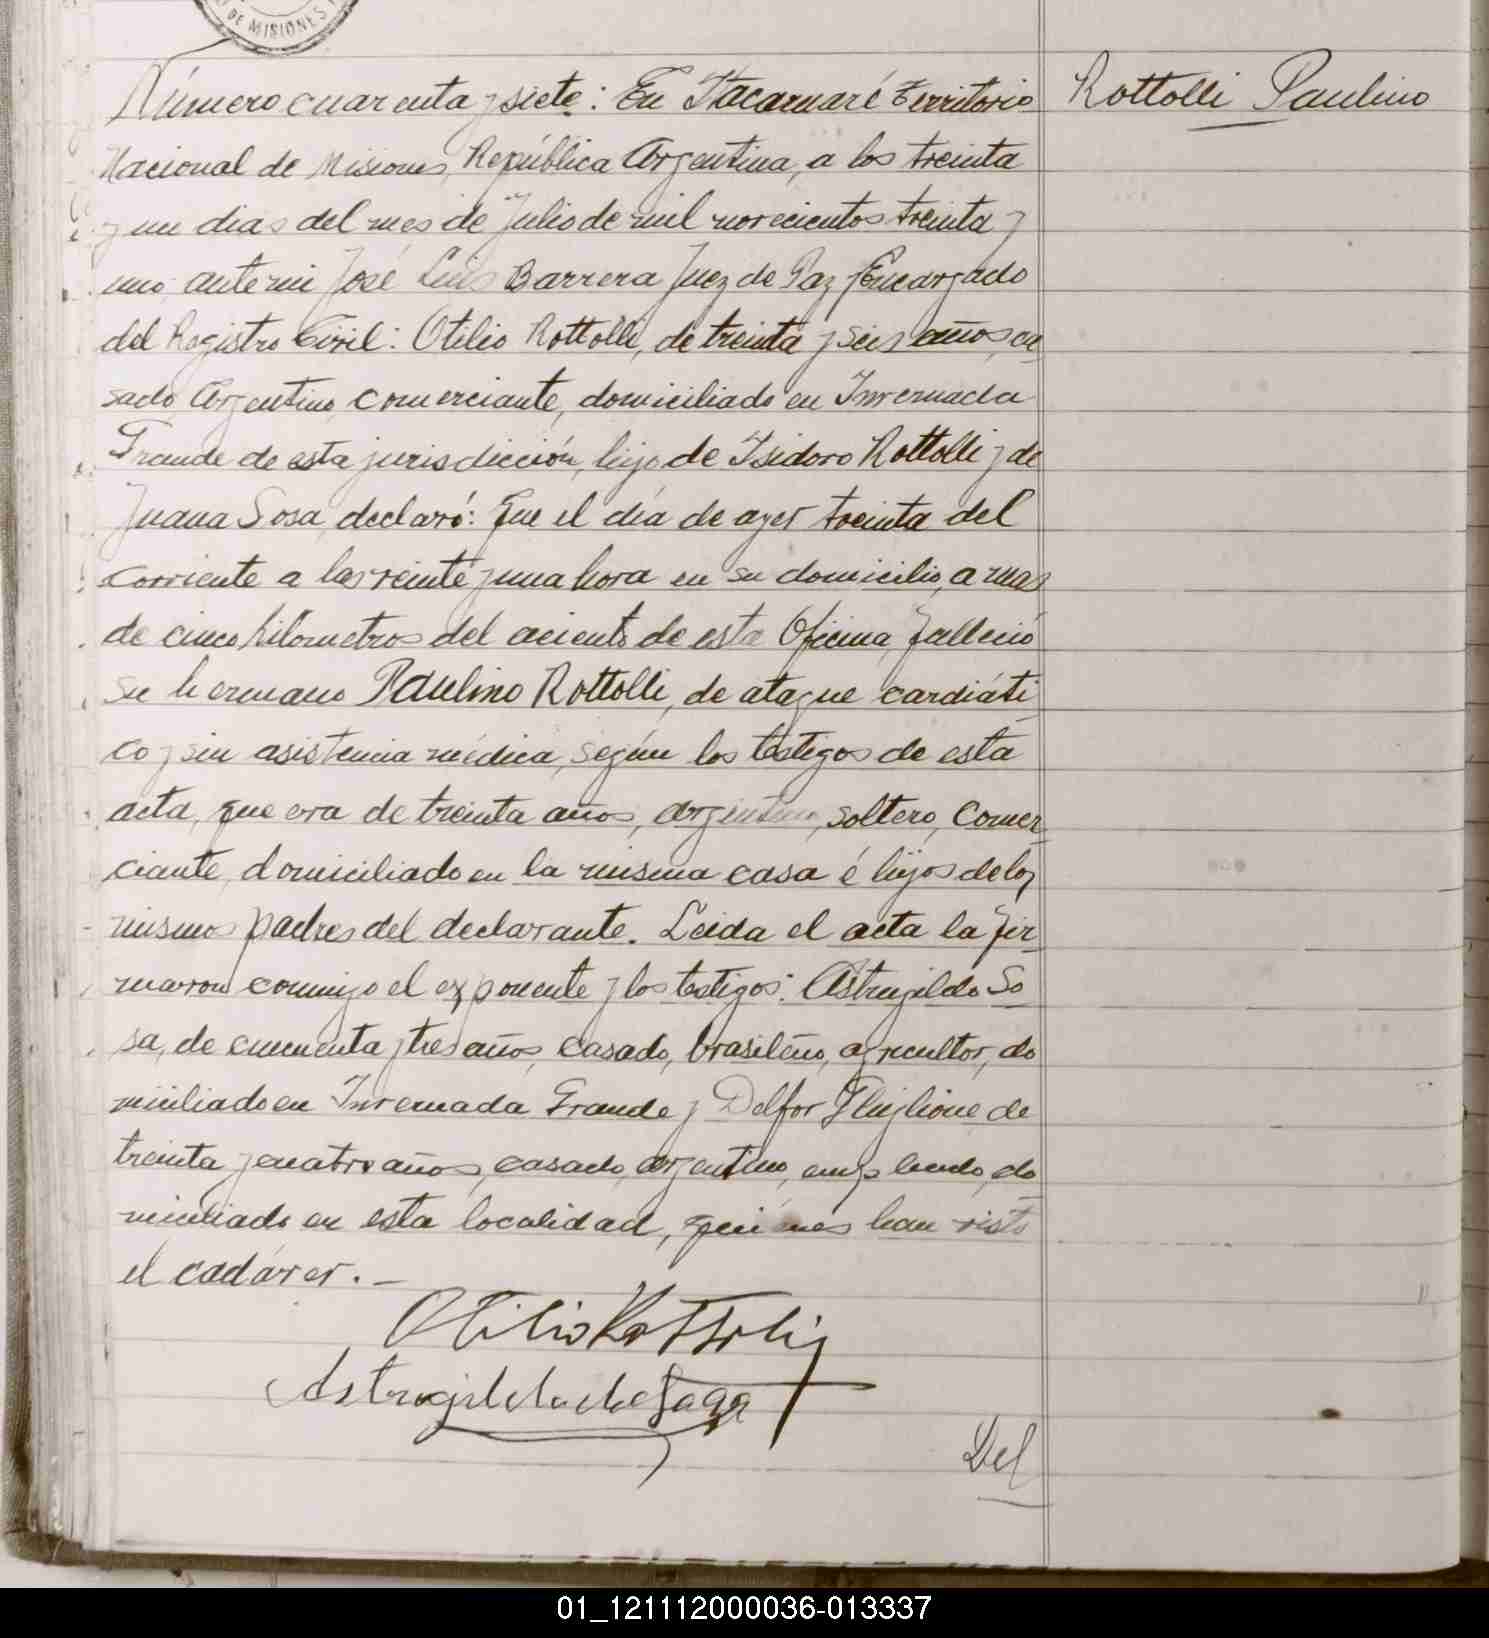 DE MISIONES
Número cuarenta y siete: En Itacaruaré Territorio
Rottolli Paulino
Nacional de Misiones, República Argentina, a los treinta
y un dias del mes de Julio de mil novecientos treinta y
uno, ante mi José Luis Barrera Juez de Paz y Encargado
del Registro Civil: Otilio Rottolli, de treinta y seis años, ca
sado, Argentino, comerciante, domiciliado en Invernada
Grande de esta jurisdicción, hijo de Isidoro Rottolli y de
Juana Sosa, declaró: Que el día de ayer treinta del
corriente a las veinte y una hora en su domicilio, a mas
de cinco kilometros del aciento de esta Oficina, falleció
su hermano Paulino Rottolli, de ataque cardiáti
co y sin asistencia médica, según los testigos de esta
acta, que era de treinta años, argentino, soltero, comer
ciante, domiciliado en la misma casa é hijos de los
mismos padres del declarante. Leida el acta la fir
maron conmigo el exponente y los testigos: Astrugildo So
sa, de cincuenta y tres años, casado, brasileño, agricultor, do
miciliado en Invernada Grande y Delfor Ghiglione de
treinta y cuatro años, casado, argentino, empleado, do
miciliado en esta localidad, quienes han visto
el cadáver. —
Otilio Rottolli
Del
01_121112000036-013337